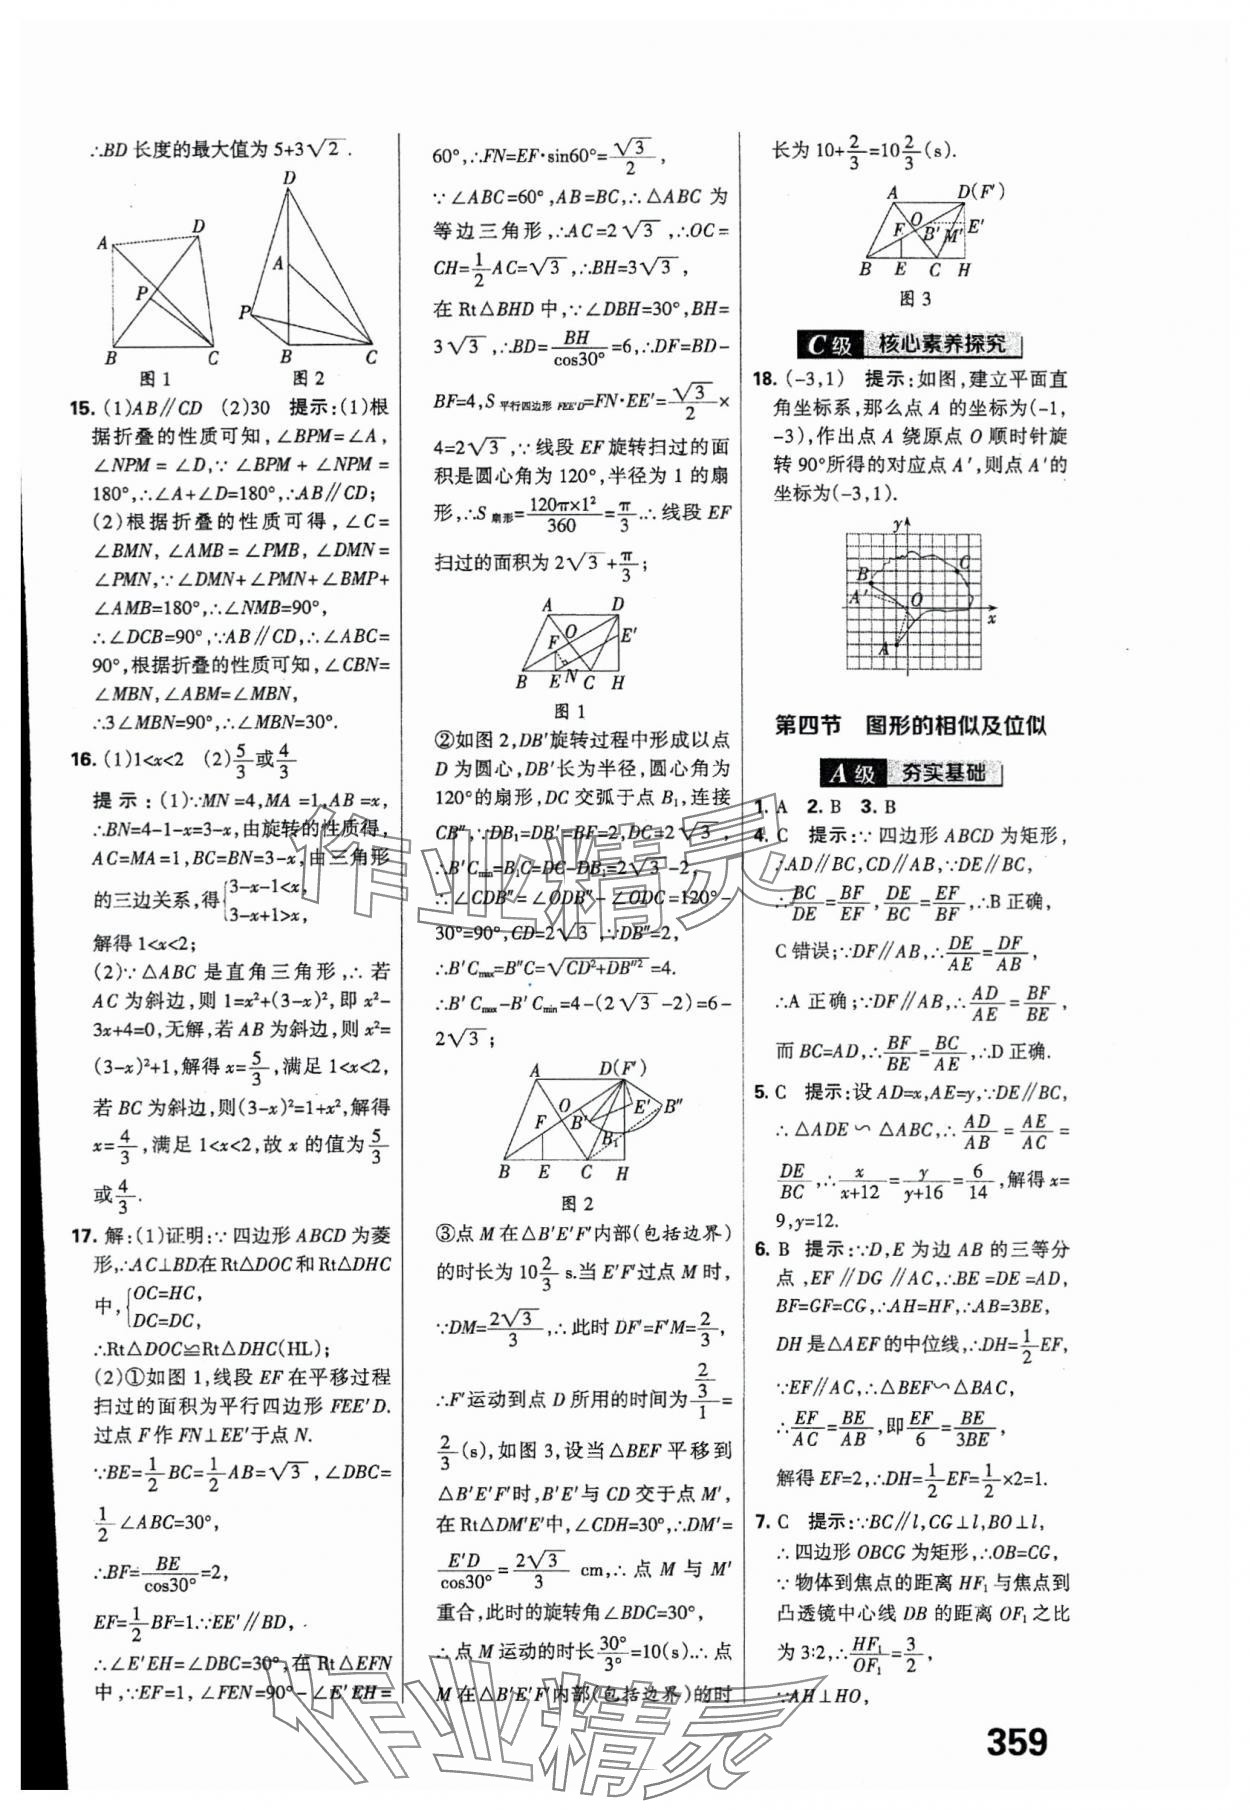 ∴BD 长度的最大值为 5+3√2.
A D P B C
图 1
D A P B C
图 2
15. (1)AB∥CD (2)30 提示:(1)根
据折叠的性质可知,∠BPM=∠A,
∠NPM =∠D,∵∠BPM +∠NPM =
180°,∴∠A+∠D=180°,∴AB∥CD;
(2)根据折叠的性质可得,∠C=
∠BMN,∠AMB=∠PMB,∠DMN=
∠PMN,∵∠DMN+∠PMN+∠BMP+
∠AMB=180°,∴∠NMB=90°,
∴∠DCB=90°,∵AB∥CD,∴∠ABC=
90°,根据折叠的性质可知,∠CBN=
∠MBN,∠ABM=∠MBN,
∴3∠MBN=90°,∴∠MBN=30°.
16. (1)1<x<2 (2)5/3或4/3
提示:(1)∵MN=4,MA=1,AB=x,
∴BN=4-1-x=3-x,由旋转的性质得,
AC=MA=1,BC=BN=3-x,由三角形
的三边关系,得{3-x-1<x, 3-x+1>x,
解得 1<x<2;
(2)∵△ABC 是直角三角形,∴若
AC为斜边,则 1=x²+(3-x)²,即 x²-
3x+4=0,无解,若 AB 为斜边,则 x²=
(3-x)²+1,解得 x=5/3,满足 1<x<2,
若 BC为斜边,则(3-x)²=1+x²,解得
x=4/3,满足 1<x<2,故 x 的值为5/3
或4/3.
17. 解:(1)证明:∵四边形 ABCD 为菱
形,∴AC⊥BD.在Rt△DOC 和 Rt△DHC
中,{OC=HC, DC=DC,
∴Rt△DOC≌Rt△DHC(HL);
(2)①如图 1,线段 EF 在平移过程
扫过的面积为平行四边形 FEE′D.
过点 F 作 FN⊥EE′于点 N.
∵BE=1/2BC=1/2AB=√3,∠DBC=
1/2∠ABC=30°,
∴BF=BE/cos30°=2,
EF=1/2BF=1.∵EE′∥BD,
∴∠E′EH=∠DBC=30°,在 Rt△EFN
中,∵EF=1,∠FEN=90°-∠E′EH=
60°,∴FN=EF·sin60°=√3/2,
∵∠ABC=60°,AB=BC,∴△ABC 为
等边三角形,∴AC=2√3,∴OC=
CH=1/2AC=√3,∴BH=3√3,
在 Rt△BHD 中,∵∠DBH=30°,BH=
3√3,∴BD=BH/cos30°=6,∴DF=BD-
BF=4,S平行四边形FEE′D=FN·EE′=√3/2×
4=2√3,∵线段 EF 旋转扫过的面
积是圆心角为 120°,半径为 1 的扇
形,∴S扇形=120π×1²/360=π/3.∴线段 EF
扫过的面积为 2√3+π/3;
A D O F E′ B E N C H
图 1
②如图 2,DB′旋转过程中形成以点
D 为圆心,DB′长为半径,圆心角为
120°的扇形,DC 交弧于点 B₁,连接
CB″,∵DB₁=DB′=BF=2,DC=2√3,
∴B′Cmin=B₁C=DC-DB₁=2√3-2,
∴∠CDB″=∠ODB″-∠ODC=120°-
30°=90°,CD=2√3,∵DB″=2,
∴B′Cmax=B″C=√(CD²+DB″²)=4.
∴B′Cmax-B′Cmin=4-(2√3-2)=6-
2√3;
A D(F′) O E′ B″ F B′ B₁ B E C H
图 2
③点 M 在△B′E′F′内部(包括边界)
的时长为 10 2/3 s.当 E′F′过点 M 时,
∵DM=2√3/3,∴此时 DF′=F′M=2/3,
∴F′运动到点 D 所用的时间为(2/3)/1=
2/3(s),如图 3,设当△BEF 平移到
△B′E′F′时,B′E′与 CD 交于点 M′,
在 Rt△DM′E′中,∠CDH=30°,∴DM′=
E′D/cos30°=2√3/3 cm,∴点 M 与 M′
重合,此时的旋转角∠BDC=30°,
∴点 M 运动的时长30°/3°=10(s).∴点
M 在△B′E′F′内部(包括边界)的时
长为 10+2/3=10 2/3(s).
A D(F′) O F B′ M′ E′ B E C H
图 3
C级 核心素养探究
18. (-3,1) 提示:如图,建立平面直
角坐标系,那么点 A 的坐标为(-1,
-3),作出点 A 绕原点 O 顺时针旋
转 90°所得的对应点 A′,则点 A′的
坐标为(-3,1).
y B C A′ O x A
第四节 图形的相似及位似
A级 夯实基础
1. A 2. B 3. B
4. C 提示:∵四边形 ABCD 为矩形,
∴AD∥BC,CD∥AB,∵DE∥BC,
∴BC/DE=BF/EF,DE/BC=EF/BF,∴B 正确,
C 错误;∵DF∥AB,∴DE/AE=DF/AB,
∴A 正确;∵DF∥AB,∴AD/AE=BF/BE,
而 BC=AD,∴BF/BE=BC/AE,∴D 正确.
5. C 提示:设 AD=x,AE=y,∵DE∥BC,
∴△ADE∽△ABC,∴AD/AB=AE/AC=
DE/BC,∴x/(x+12)=y/(y+16)=6/14,解得 x=
9,y=12.
6. B 提示:∵D,E 为边 AB 的三等分
点,EF∥DG∥AC,∴BE=DE=AD,
BF=GF=CG,∴AH=HF,∴AB=3BE,
DH 是△AEF 的中位线,∴DH=1/2EF,
∵EF∥AC,∴△BEF∽△BAC,
∴EF/AC=BE/AB,即EF/6=BE/3BE,
解得 EF=2,∴DH=1/2EF=1/2×2=1.
7. C 提示:∵BC∥l,CG⊥l,BO⊥l,
∴四边形 OBCG 为矩形,∴OB=CG,
∵物体到焦点的距离 HF₁与焦点到
凸透镜中心线 DB 的距离 OF₁之比
为 3∶2,∴HF₁/OF₁=3/2,
∵AH⊥HO,
359
作业精灵
作业精灵